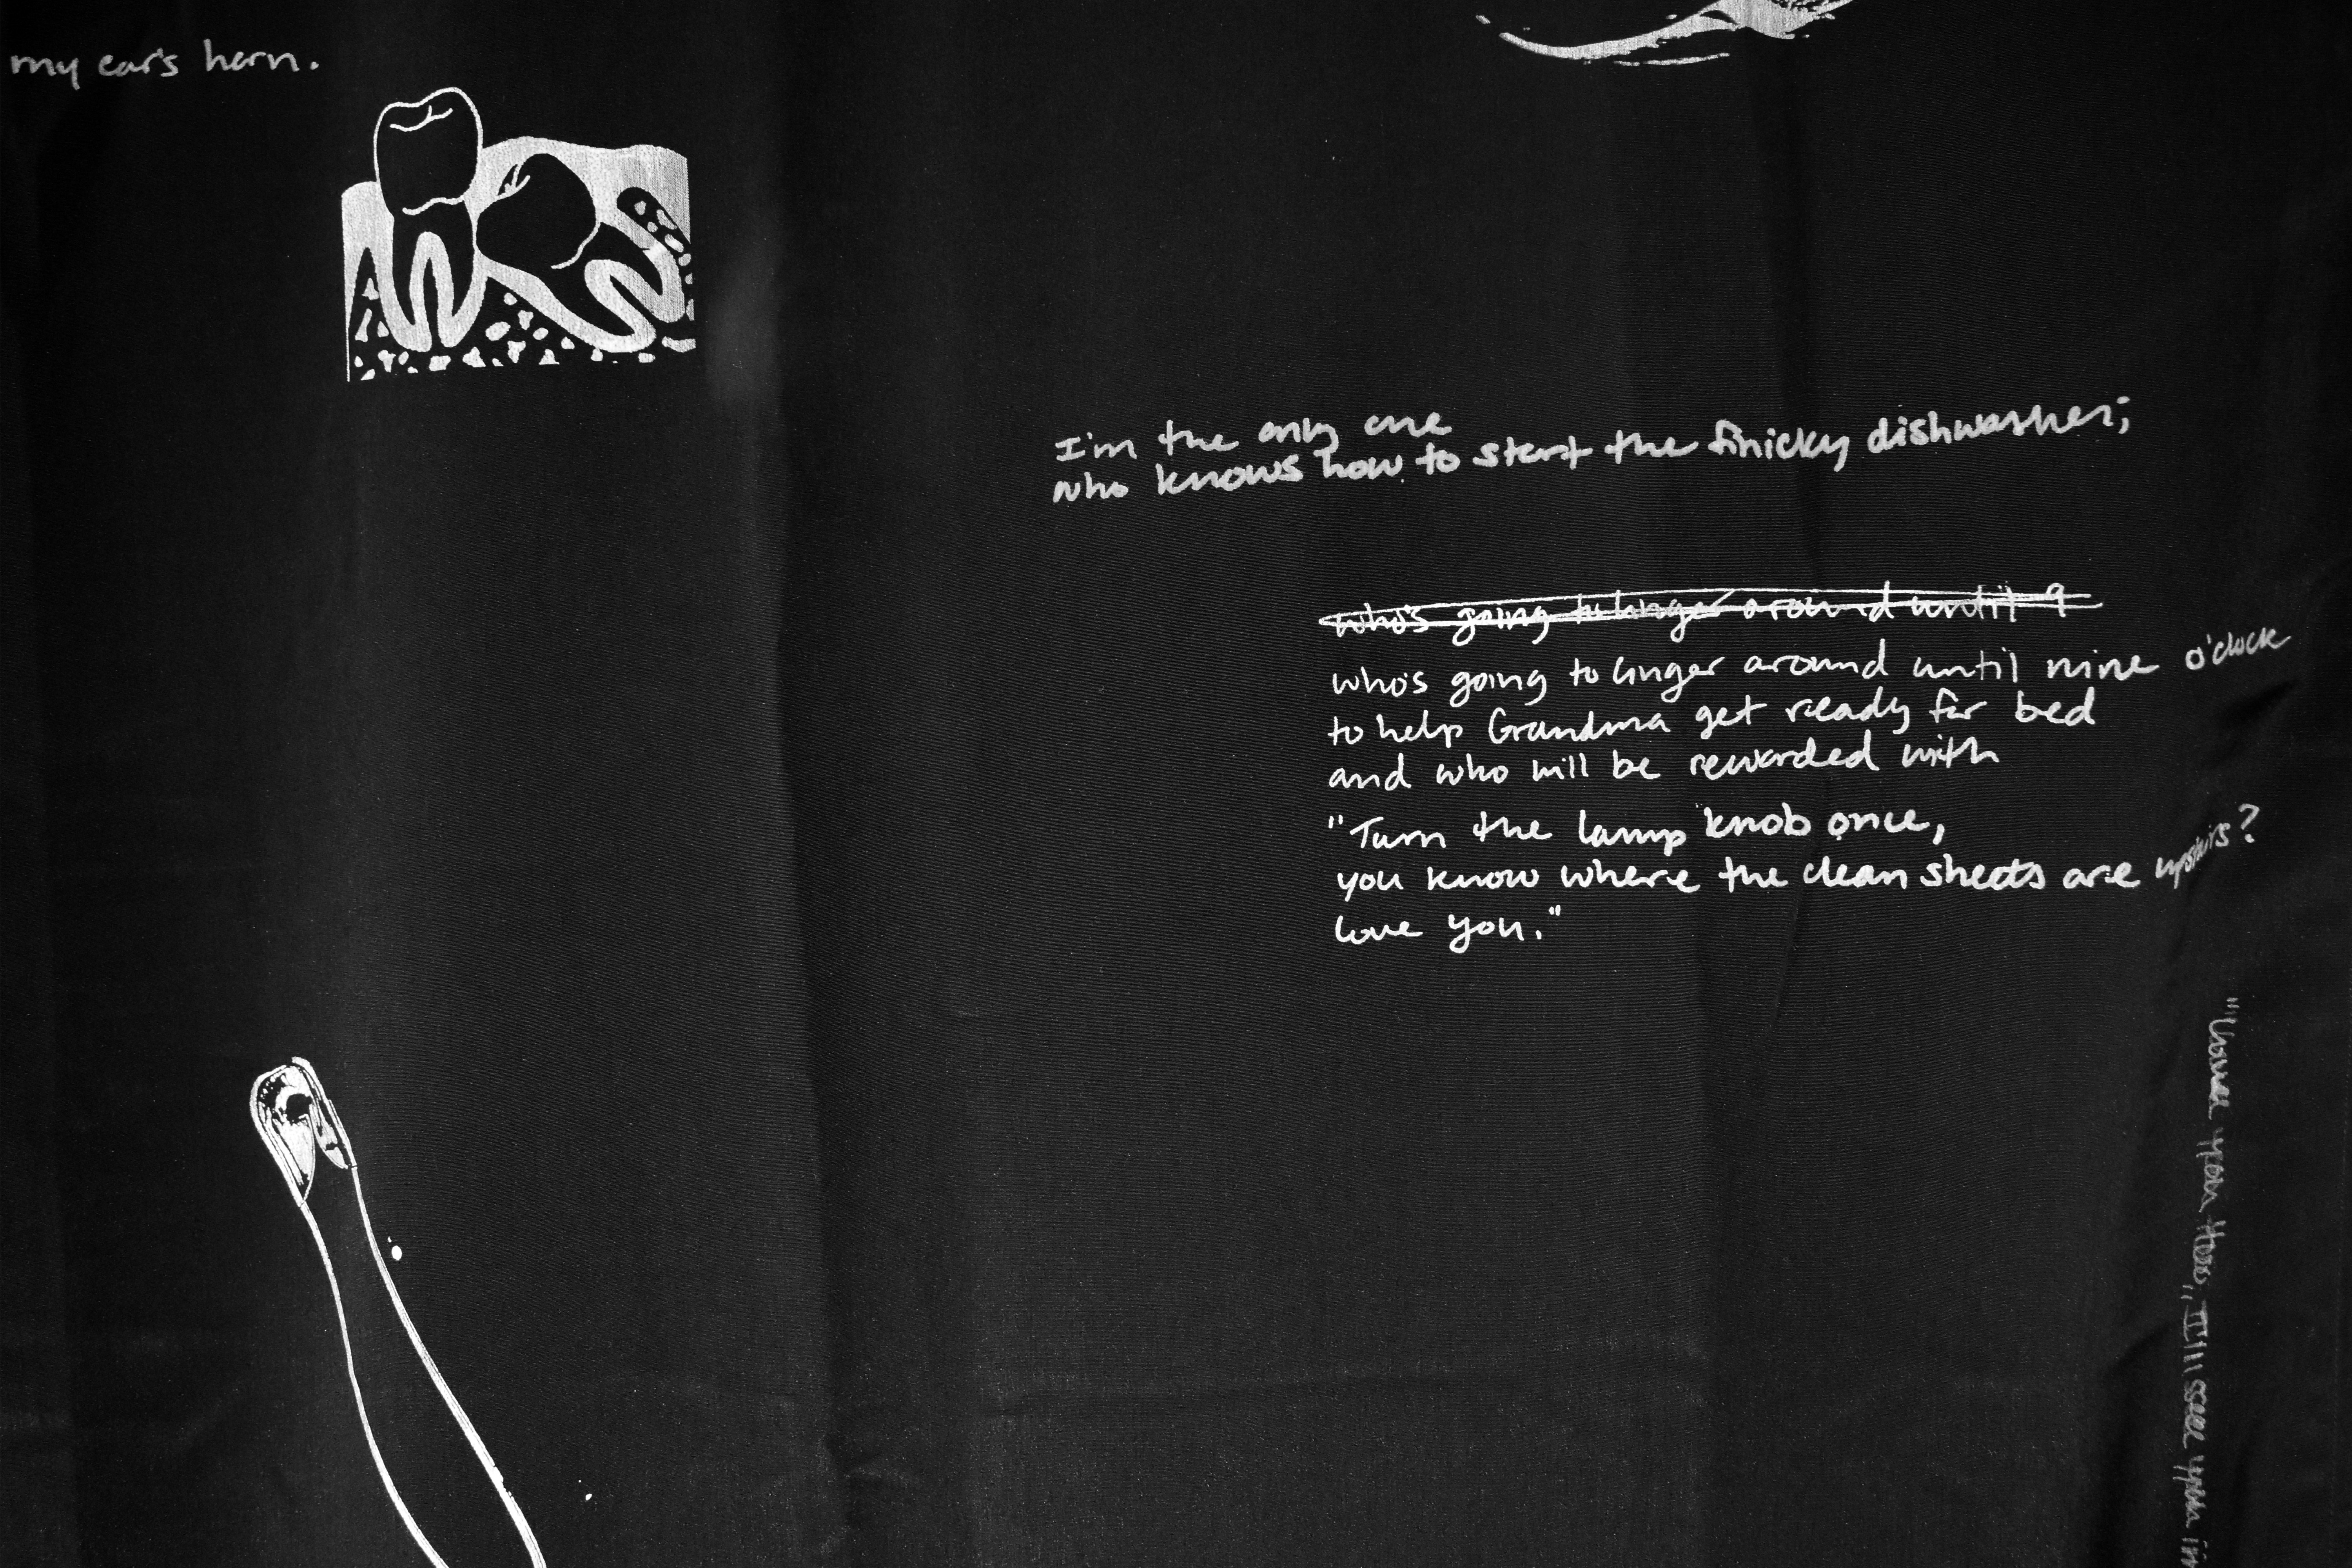 my car's horn.
I'm the only one
who knows how to start the finicky dishwasher;
who's going to linger around until 9
who's going to linger around until nine o'clock
to help Grandma get ready for bed
and who will be rewarded with
"Turn the lamp knob once,
you know where the clean sheets are upstairs?
love you."
you I'll see you in